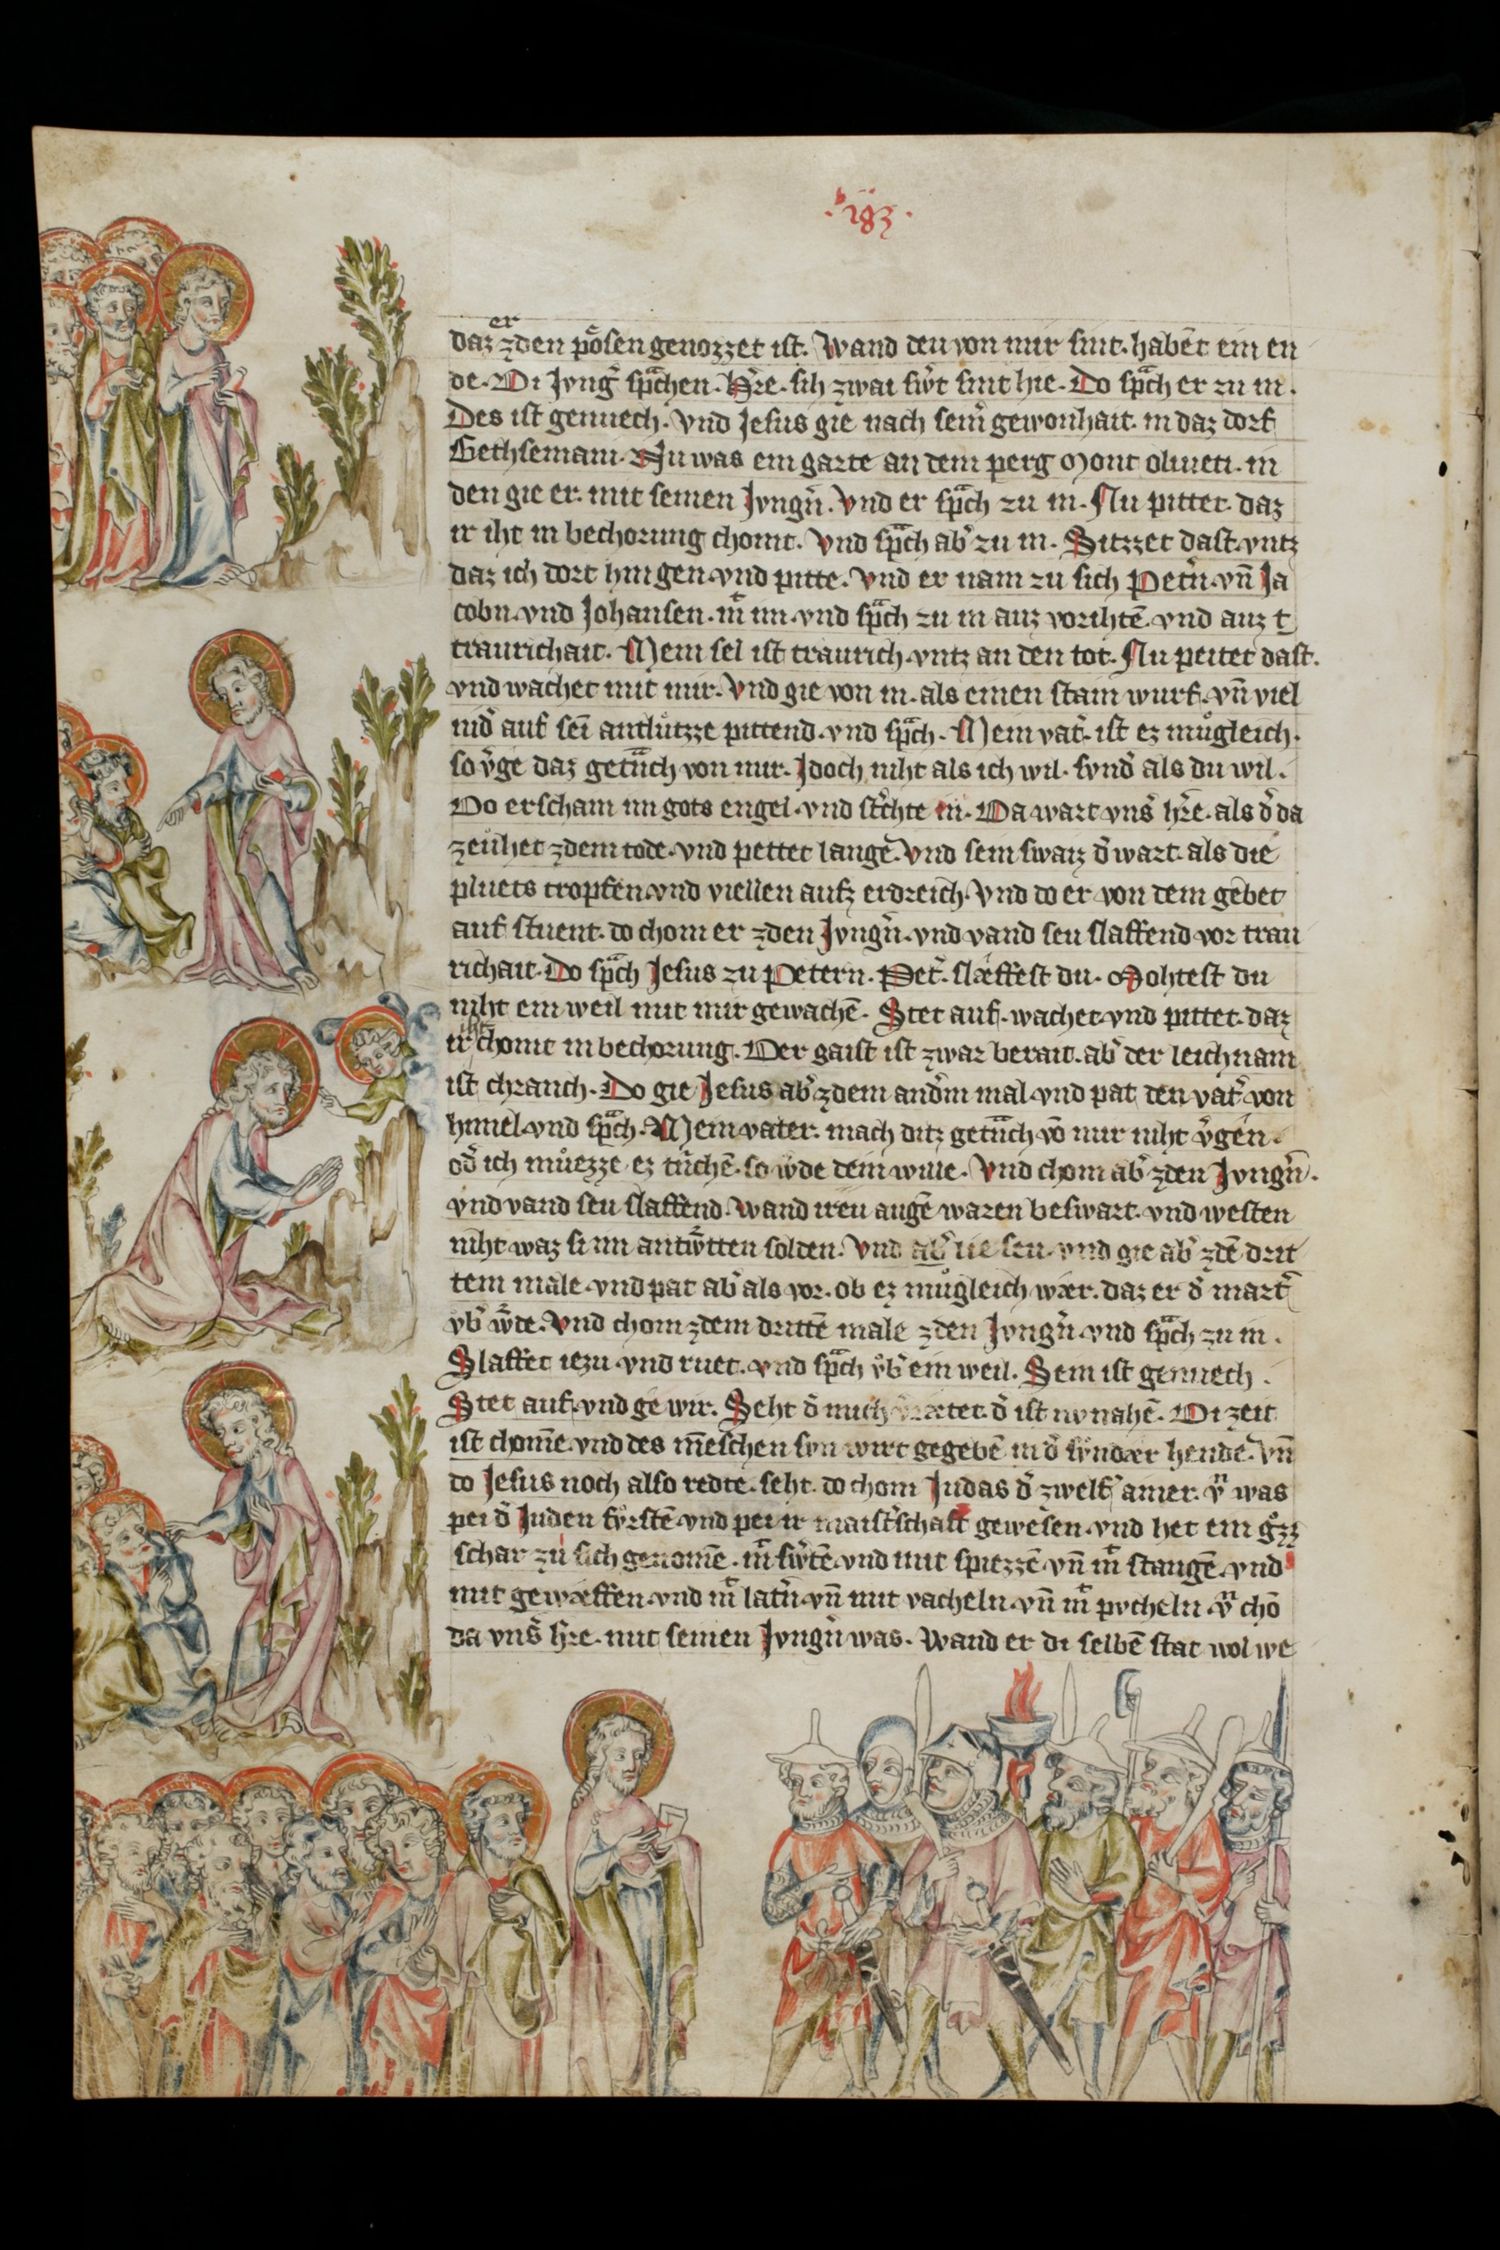 ·183·
daz er zden poͤsen genozzet ist. Wand deu von mir sint. habēt ein en
de. Di Jvng̉ sp̈chen. Hr̄e. sih zwai sẘt sint hie. Do sp̈ch er zu in.
Des ist genuech. vnd Jesus gie nach seim̉ gewonhait. in daz dorf
Gethsemani. Nu was ein garte an dem perg Mont oliueti. in
den gie er. mit seinen Jvngn̉. Vnd er sp̈ch zu in. Nu pittet. daz
ir iht in bechorung chomt. Vnd sp̈ch ab̉ zu in. Sitzzet dast. vntz
daz ich dort hin gen. vnd pitte. Vnd er nam zu sich Petn̉. vn̄ Ja
cobn. vnd Johansen. mͭ im. vnd sp̈ch zu in auz vorihtē. vnd auz t
traurichait. Mein sel ist traurich. vntz an den tot. Nu peitet dast.
vnd wachet mit mir. Vnd gie von in. als einen stain wurf. vn̄ viel
nid̉ auf sei antluͤtzze pittend. vnd sp̈ch. Mein vat̉. ist ez muͤgleich.
so v̉ge daz getͣnch von mir. Jdoch niht als ich wil. svnd̉ als du wil.
Do erschain im gots engel. vnd st̉chte in. Da wart vns̉ hr̄e. als d̉ da
zeuͤhet zdem tode. vnd pettet lange. Vnd sein swaiz d̉ wart. als die
pluets tropfen. vnd viellen aufz erdreich. Vnd do er von dem gebet
auf stuent. do chom er zden Jvngn̉. vnd vand seu slaffend vor trau
richait. Do sp̈ch Jesus zu Petern. Pet̉. slæffest du. Mohtest du
niht ein weil mit mir gewachē. Stet auf. wachet. vnd pittet. daz
ir iht chomt in bechorung. Der gaist ist zwar berait. ab̉ der leichnam
ist chranch. Do gie Jesus ab̉ zdem andm̉ mal. vnd pat den vat̉ von
himel. vnd sp̈ch. Mein vater. mach ditz getͣnch vō mir niht v̉gen.
od̉ ich muͤezze ez tͥnchē. so ẘde dein wille. Vnd chom ab̉ zden Jvngn̉.
vnd vand seu slaffend. Wand ireu augē waren beswart. vnd westen
niht waz si im antẘtten solden. Vnd ab̉ lie seu. vnd gie ab̉ zdē drit
tem male. vnd pat ab̉ als vor. ob ez muͤgleich wær. daz er d̉ mart̉
vb̉ ẘde. Vnd chom zdem drittē male zden Jvngn̉. vnd sp̈ch zu in.
Slaffet iezu. vnd ruet. vnd sp̈ch vͤb̉ ein weil. Sein ist genuech.
Stet auf. vnd ge wir. Seht d̉ mich v̉rætet. d̉ ist nv nahē. Di zeit
ist chom̄e. vnd des m̄eschen svn wirt gegebē in d̉ svͤndær hende. Vn̄
do Jesus noch also redte. seht. do chom Judas d̉ zwelf ainer. vͬ was
pei d̉ Juden fvͤrstē. vnd pei ir maist̉schaft gewesen. vnd het ein gͦzz
schar zu sich genomē. mͭ sẘtē. vnd mit spiezzē. vn̄ mͭ stangē. vnd
mit gewæffen. vnd mͭ latn̉. vn̄ mit vacheln. vn̄ mͭ pvcheln. vͬ chō
da vns̉ hr̄e. mit seinen Jvngn̉ was. Wand er di selbē stat wol we